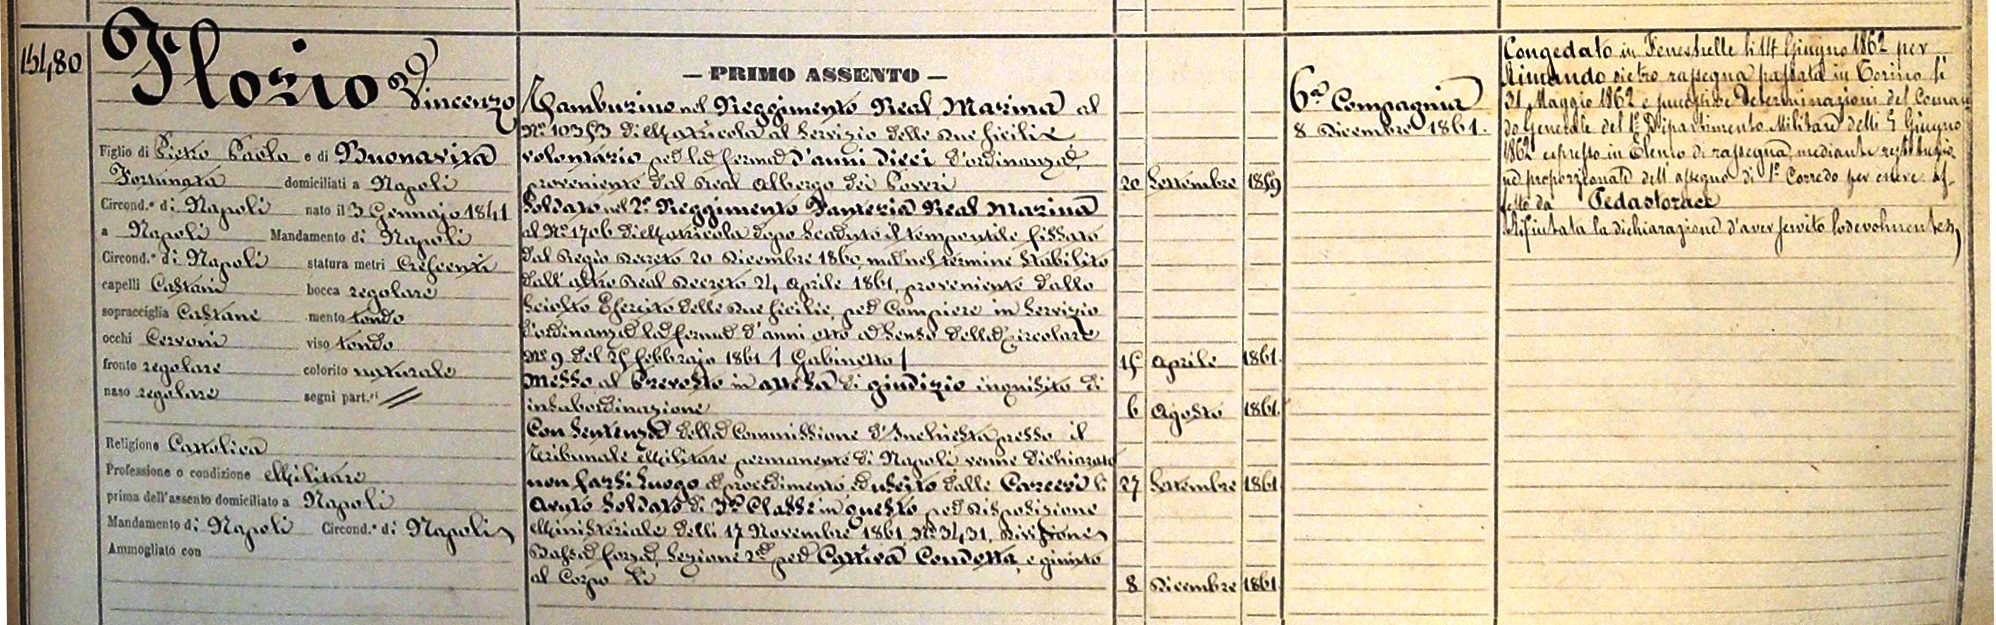 15480
Florio Vincenzo
Figlio di Pietro Paolo e di Buonavita
Fortunata domiciliati a Napoli
Circond.º di Napoli nato il 3 Gennajo 1841
a Napoli Mandamento di Napoli
Circond.º di Napoli statura metri Crescenti
capelli Castani bocca regolare
sopracciglia Castane mento tondo
occhi Cervoni viso tondo
fronte regolare colorito naturale
naso regolare segni part.ri //
Religione Cattolica
Professione o condizione Militare
prima dell'assento domiciliato a Napoli
Mandamento di Napoli Circond.º di Napoli
Ammogliato con
— PRIMO ASSENTO —
Tamburino nel Reggimento Real Marina al
Nº di Matricola al Servizio delle due Sicilie
volontario per la ferma d'anni dieci d'ordinanza,
proveniente dal Real Albergo dei Poveri 20 Settembre 1859
Soldato nel 2º Reggimento Fanteria Real Marina
al Nº 1706 di Matricola dopo scaduto il tempo utile fissato
dal Regio Decreto 20 Dicembre 1860, ma nel termine stabilito
dall'altro Real Decreto 24 Aprile 1861, proveniente dallo
sciolto Esercito delle due Sicilie, per compiere in Servizio
d'ordinanza la ferma d'anni otto a senso della Circolare
Nº 9 del 25 febbrajo 1861 / Gabinetto / 15 Aprile 1861.
Messo al Prevosto in attesa di giudizio inquisito di
insubordinazione 6 Agosto 1861.
Con Sentenza della Commissione d'Inchiesta presso il
Tribunale Militare permanente di Napoli venne dichiarato
non farsi luogo a procedimento ed uscito dalle Carceri li 27 Settembre 1861
Avuto Soldato di 3ª Classe in questo per disposizione
Ministeriale delli 17 Novembre 1861, Nº 3431, Divisione
Bassa forza, Sezione 2ª per Cattiva Condotta, e giunto
al Corpo li 8 Dicembre 1861
6ª Compagnia
8 Dicembre 1861.
Congedato in Fenestrelle li 14 Giugno 1862 per
Rimando dietro rassegna passata in Torino li
31 Maggio 1862 e successive Determinazioni del Coman
do Generale del 1º Dipartimento Militare delli 5 Giugno
1862 espresso in Elenco di rassegna, mediante
proporzionate dell'assegno di 1º Corredo per essere af-
fetto da
Rifiutata la dichiarazione d'aver servito lodevolmente